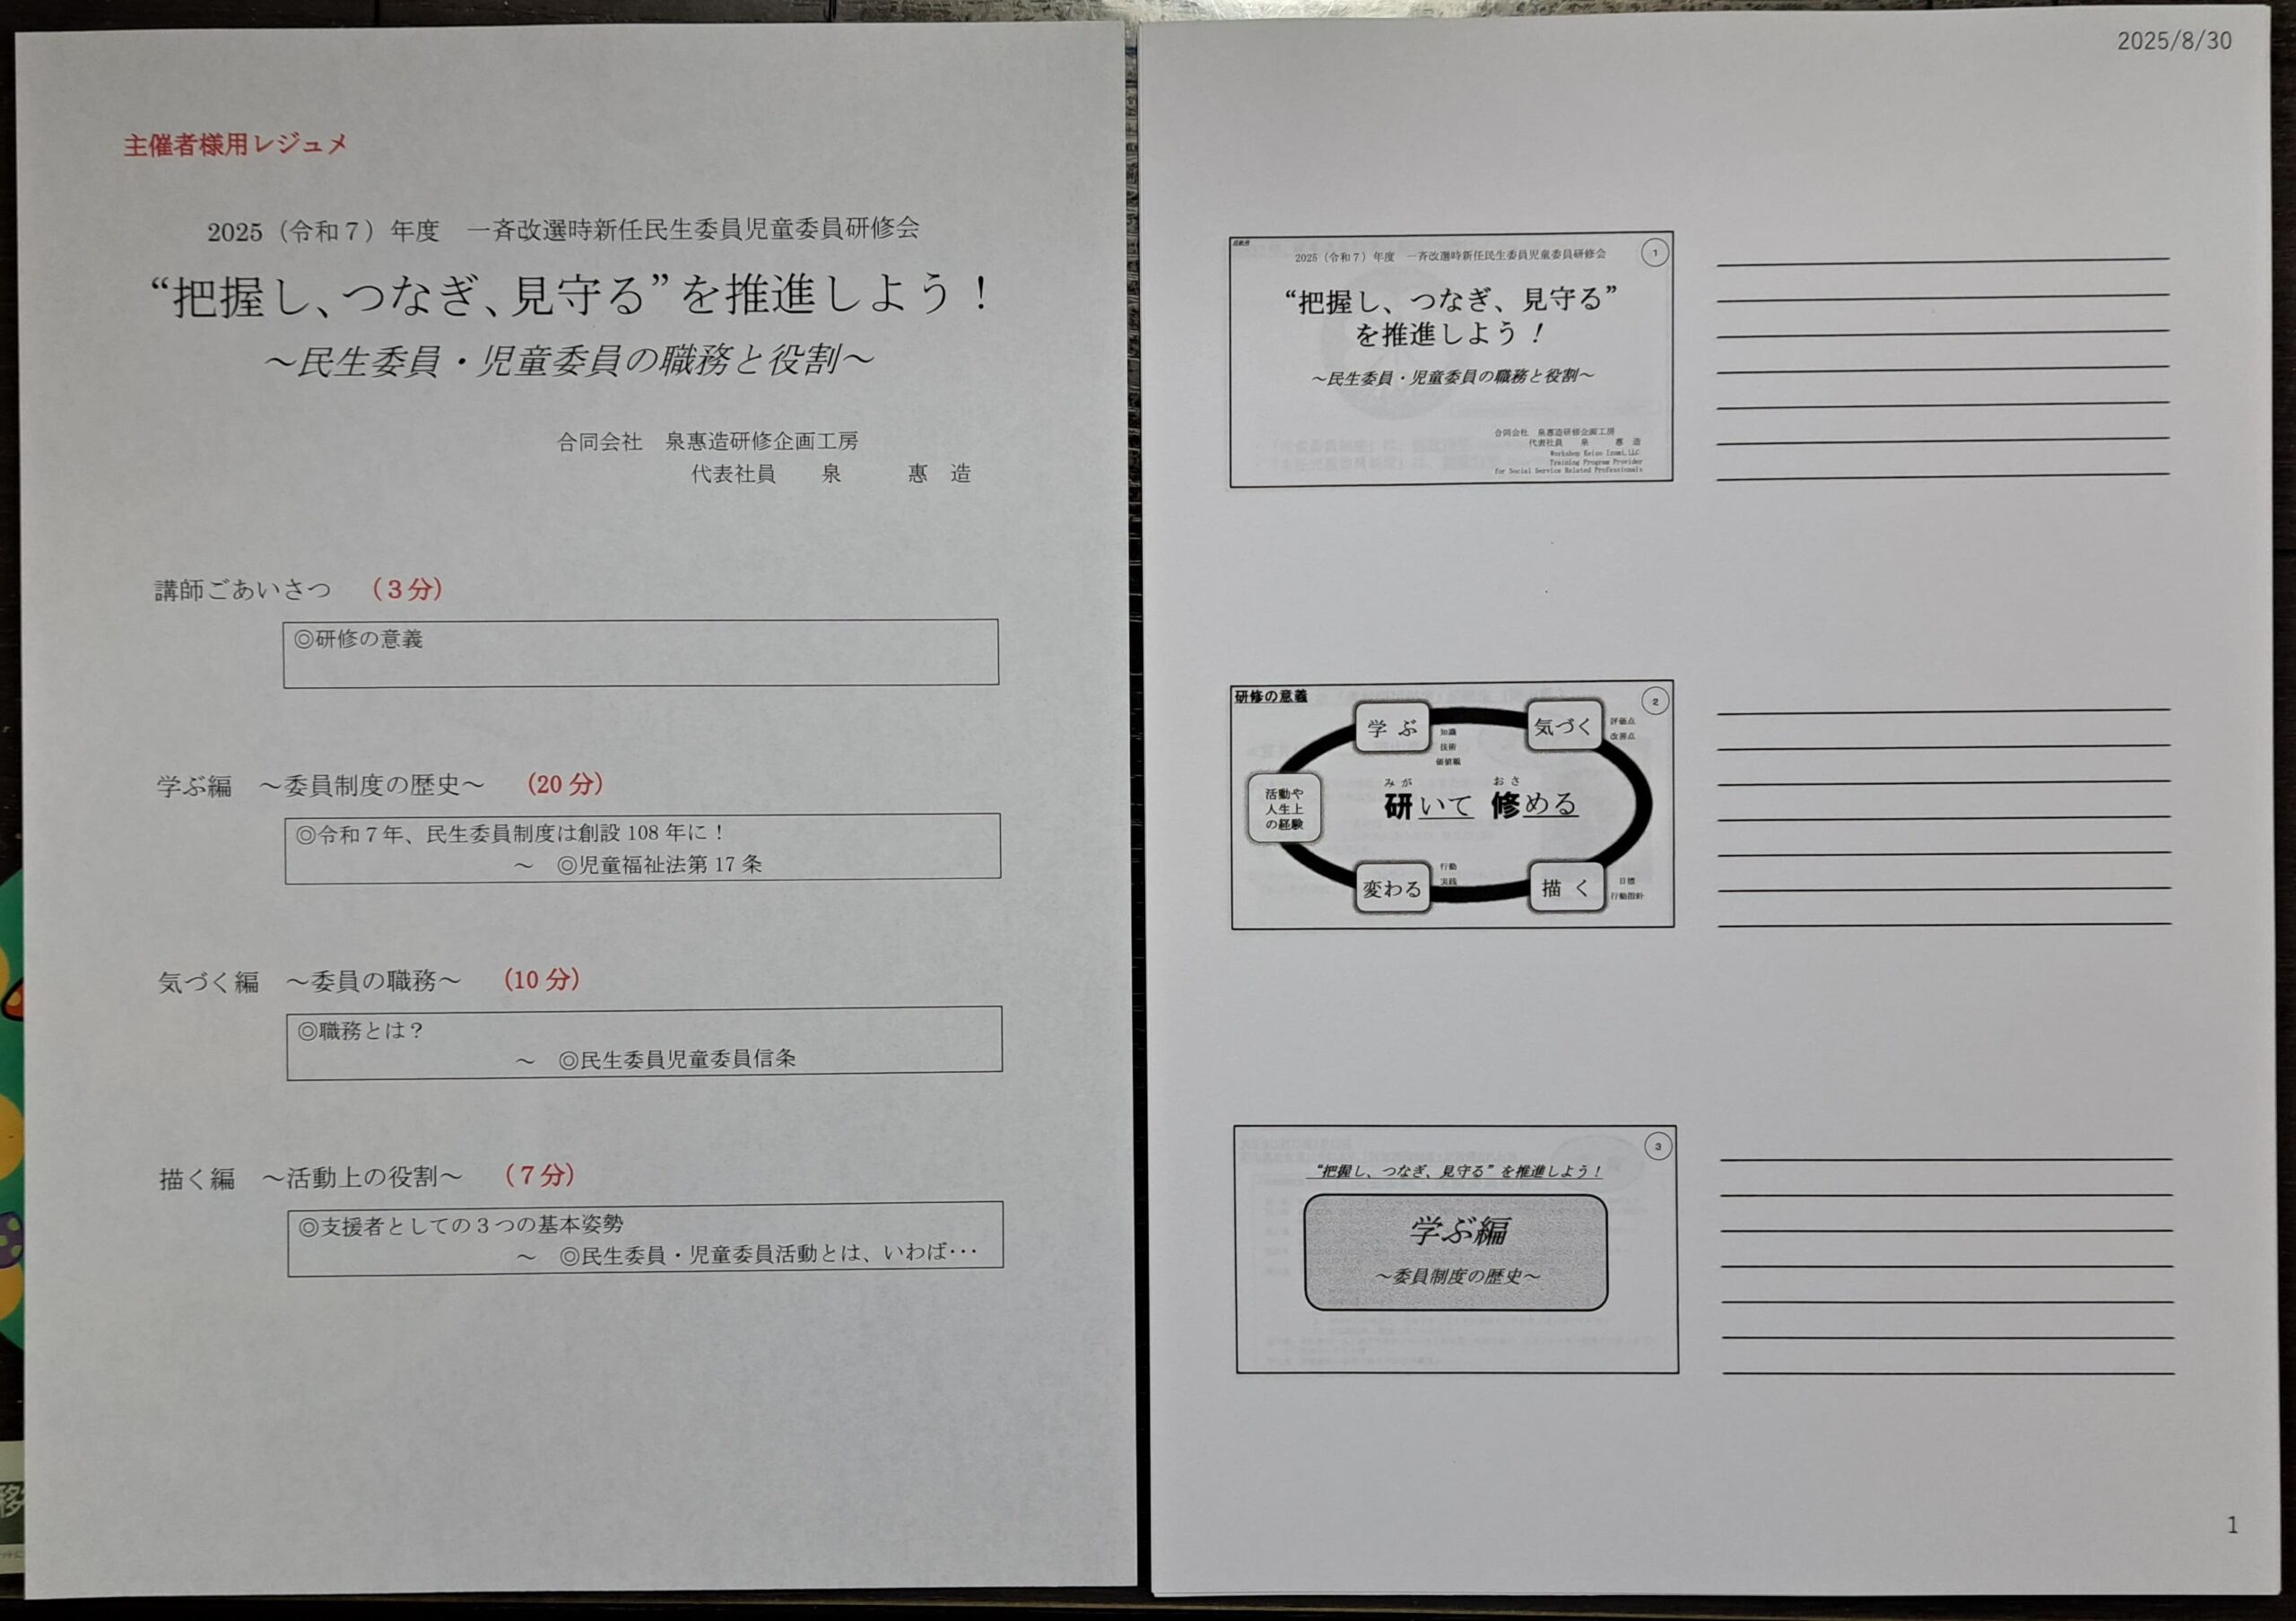 主催者様用レジュメ
2025（令和７）年度　一斉改選時新任民生委員児童委員研修会
“把握し、つなぎ、見守る”を推進しよう！
～民生委員・児童委員の職務と役割～
合同会社　泉惠造研修企画工房
代表社員　泉　惠　造
講師ごあいさつ　（３分）
◎研修の意義
学ぶ編　～委員制度の歴史～　（20 分）
◎令和７年、民生委員制度は創設 108 年に！
～　◎児童福祉法第 17 条
気づく編　～委員の職務～　（10 分）
◎職務とは？
～　◎民生委員児童委員信条
描く編　～活動上の役割～　（７分）
◎支援者としての３つの基本姿勢
～　◎民生委員・児童委員活動とは、いわば･･･
2025/8/30
2025（令和７）年度　一斉改選時新任民生委員児童委員研修会
1
“把握し、つなぎ、見守る”
を推進しよう！
～民生委員・児童委員の職務と役割～
合同会社　泉惠造研修企画工房
代表社員　泉　惠　造
Workshop Keizo Izumi,LLC
Training Program Provider
for Social Service Related Professionals
研修の意義
2
学 ぶ
知識
技術
価値観
気づく
評価点
改善点
活動や
人生上
の経験
みが　おさ
研いて 修める
変わる
行動
実践
描 く
目標
行動指針
3
“把握し、つなぎ、見守る”を推進しよう！
学ぶ編
～委員制度の歴史～
1
移